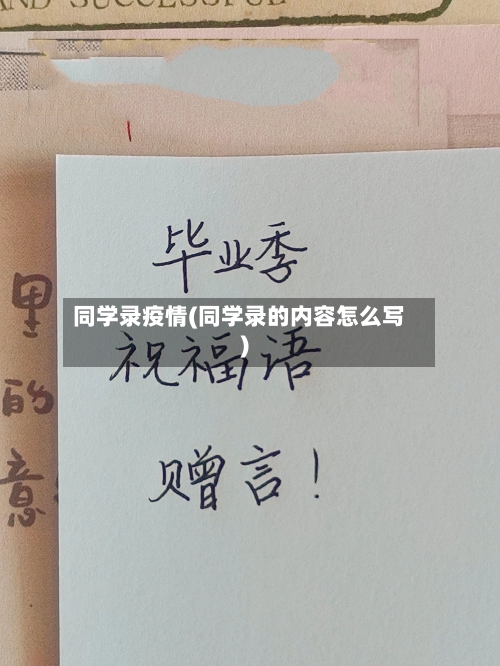 AND SUCCESSFUL
毕业季
同学录疫情(同学录的内容怎么写
)
祝福语
赠言！
里
的
意